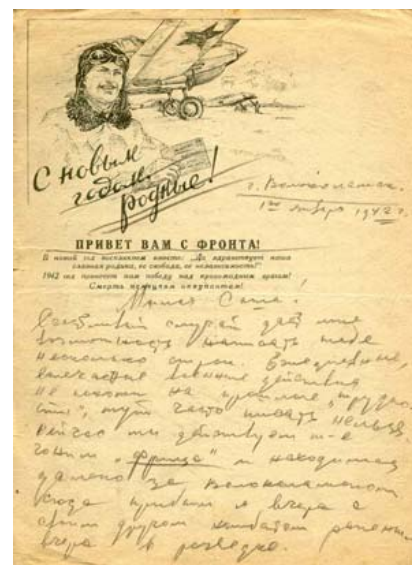 С новым
годом,
родные!
г. Волоколамск.
1ое января 1942 г.
ПРИВЕТ ВАМ С ФРОНТА!
В новый год воскликнем вместе: „Да здравствует наша
славная родина, ее свобода, ее независимость!"
1942 год принесет нам победу над кровожадным врагом!
Смерть немецким оккупантам!
Милая Саша!
Счастливый случай дает мне
возможность написать тебе
несколько строк. Ежедневные,
военные действия
не на
часто писать нельзя
Сейчас мы действуем т-е
гоним „фрица" и находимся
далеко за Волоколамском
сюда прибыл я вчера с
своим другом
вчера в разведке.